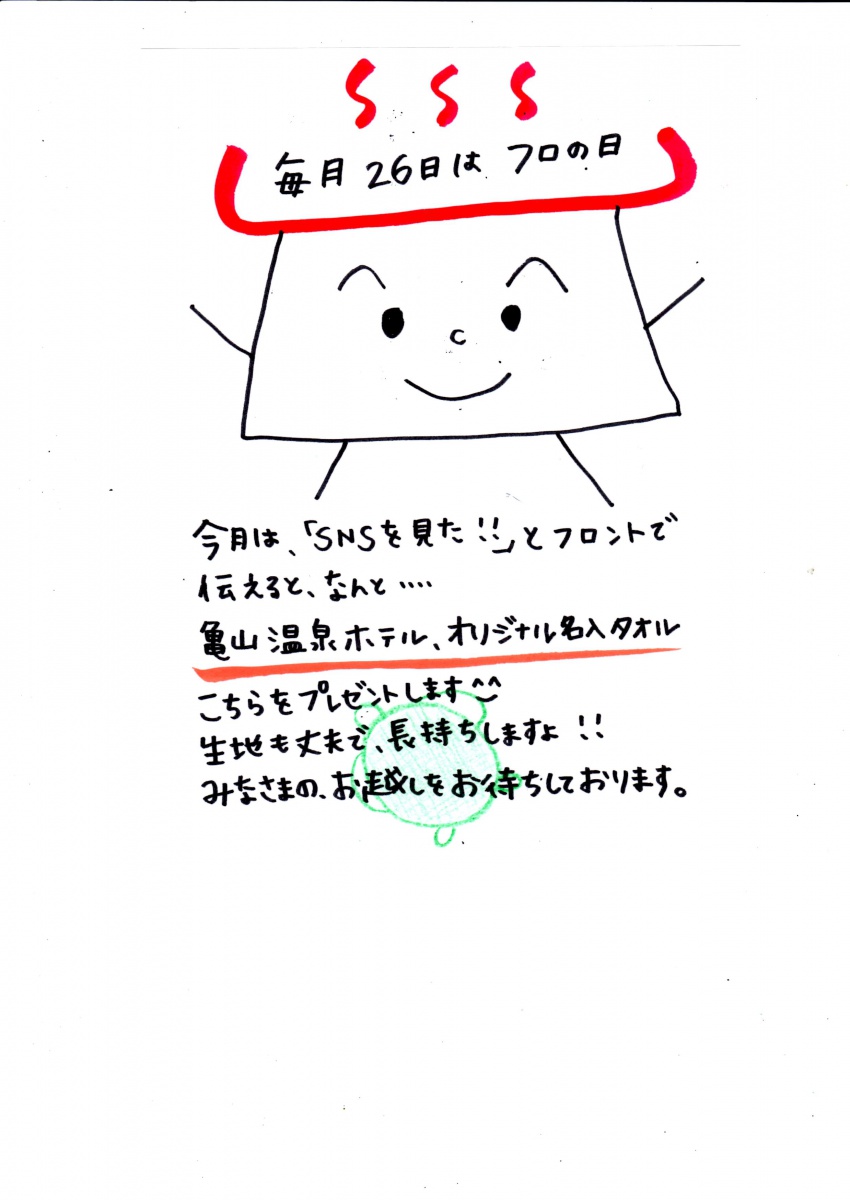 毎月26日はフロの日
今月は、「SNSを見た!!」とフロントで
伝えると、なんと‥‥
亀山温泉ホテル、オリジナル名入タオル
こちらをプレゼントします^^
生地も丈夫で、長持ちしますよ!!
みなさまの、お越しをお待ちしております。